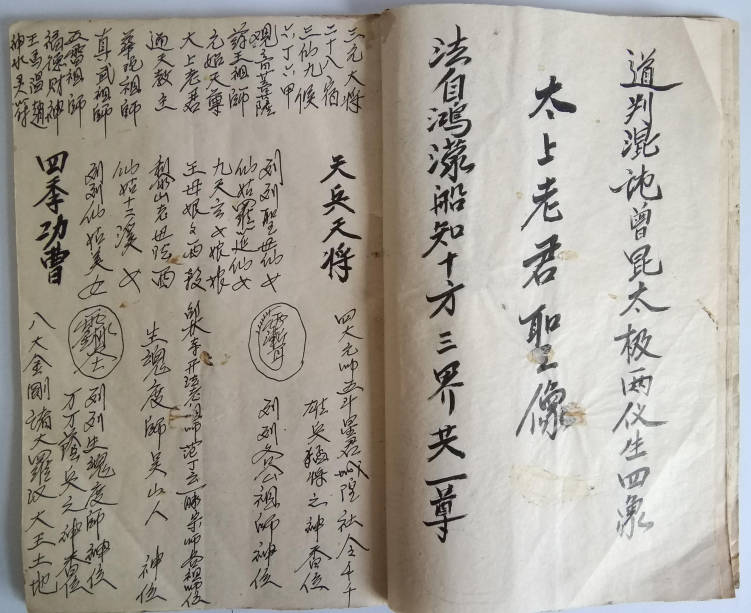 道判混沌曾昆太极两仪生四象
太上老君聖像
法自鴻濛船知十方三界共一尊
三元大将
二十八宿
三仙九候
六丁六甲
观音菩薩
药王祖師
元始天尊
太上老君
通天教主
華陀祖師
真武祖師
五雷祖師
福德财神
王馬温趙
神水灵符
天兵天将
列列聖母仙女
仙姑羅延仙女
九天玄女娘娘
王母娘々西殺
黎山老母陀西
仙姑十二溪女
列列仙姑美女
四季功曹
四大元帅五斗星君城隍社令千千
雄兵猛将之神香位
列列各公祖師神位
生魂度師吴山人 神位
列列生魂度師神位
万万蔭兵之神香位
八大金剛諸大羅汉大王土地